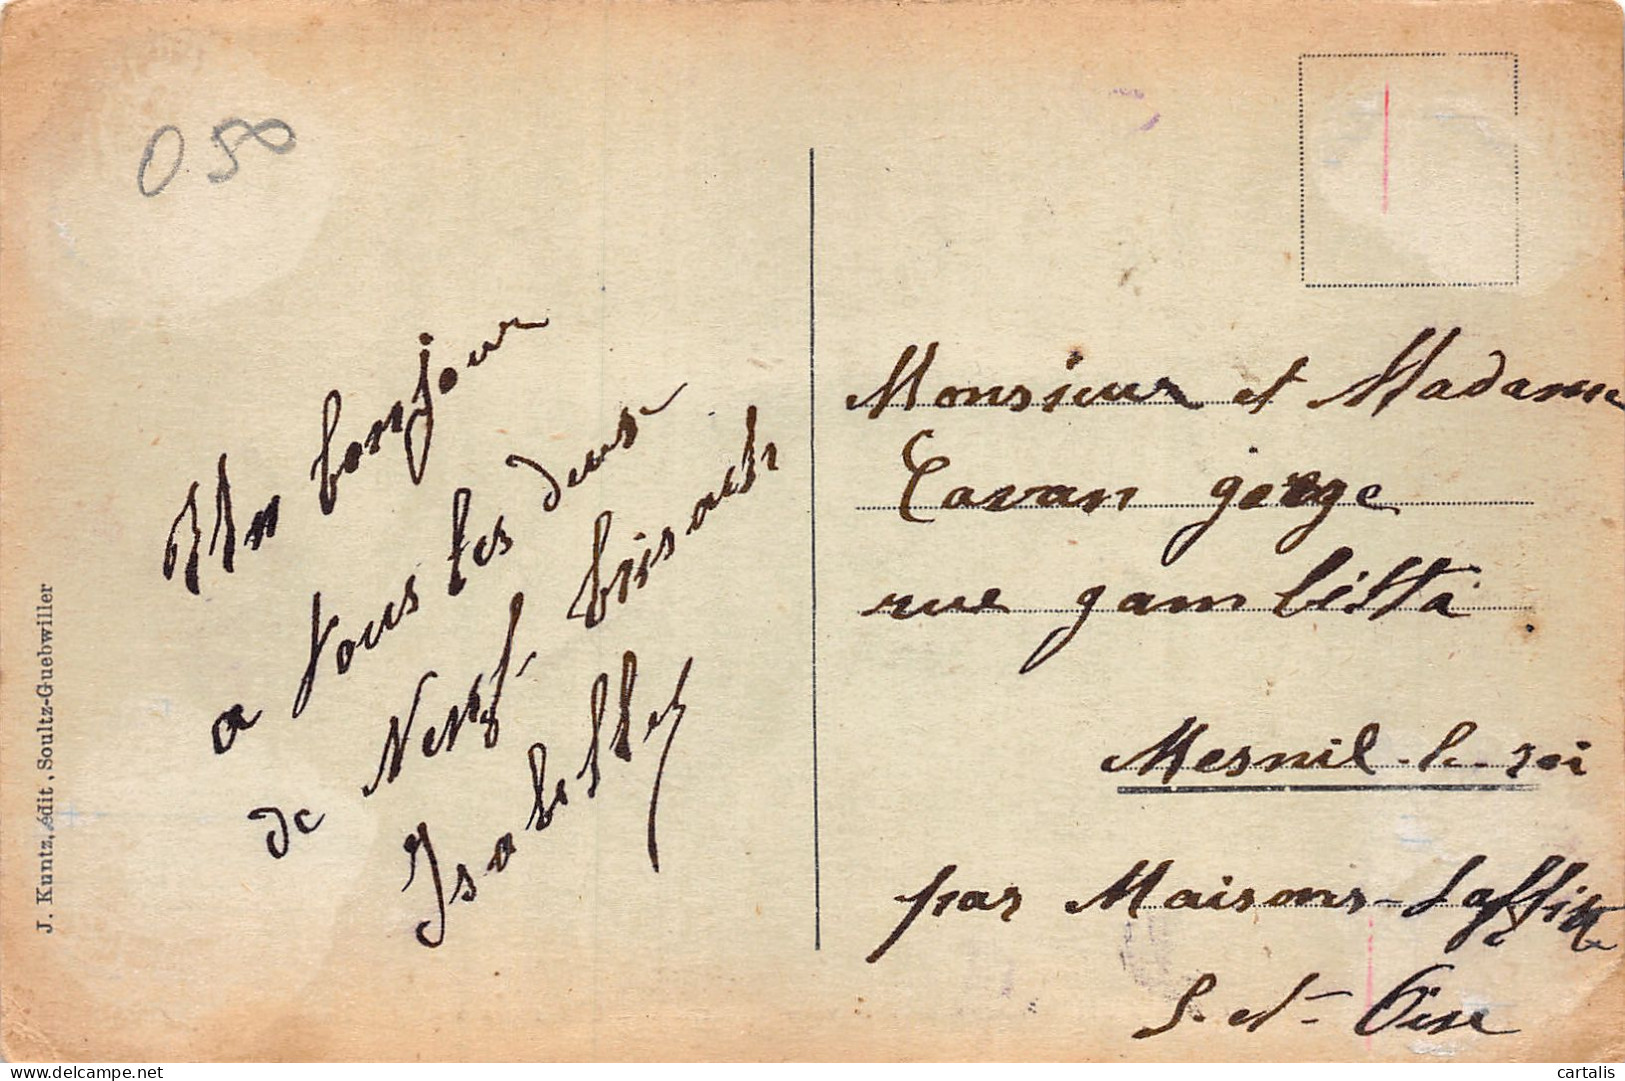 050
Un bonjour
a tous les deux
de Neuf-brisach
Isabelle
J. Kuntz, édit, Soultz-Guebwiller
Monsieur et Madame
Cavan george
rue gambetta
Mesnil-le-roi
par Maisons-Laffitte
S.-et-Oise
delcampe.net
cartalis